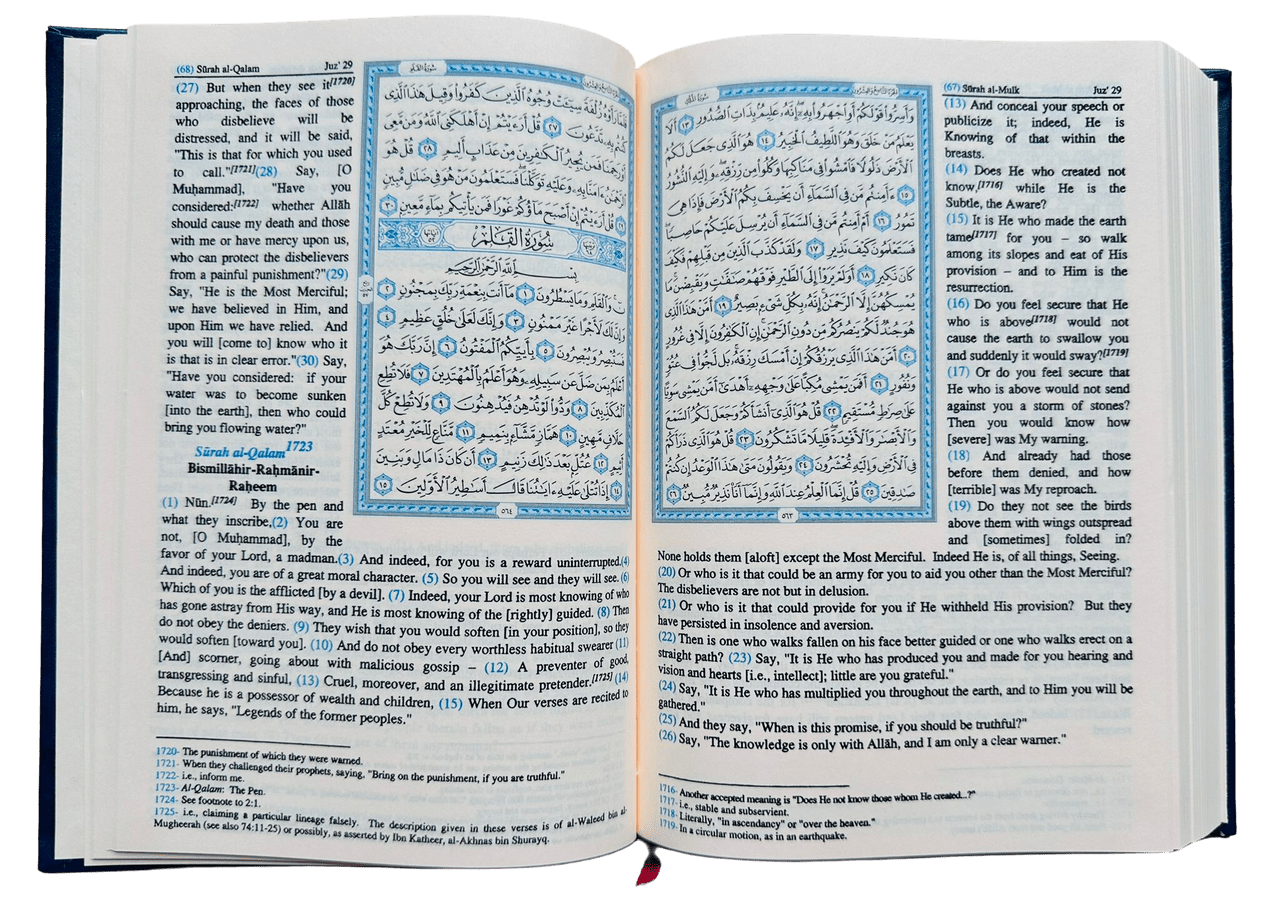 (67) Sūrah al-Mulk Juz' 29
(13) And conceal your speech or
publicize it; indeed, He is
Knowing of that within the
breasts.
(14) Does He who created not
know,[1716] while He is the
Subtle, the Aware?
(15) It is He who made the earth
tame[1717] for you – so walk
among its slopes and eat of His
provision – and to Him is the
resurrection.
(16) Do you feel secure that He
who is above[1718] would not
cause the earth to swallow you
and suddenly it would sway?[1719]
(17) Or do you feel secure that
He who is above would not send
against you a storm of stones?
Then you would know how
[severe] was My warning.
(18) And already had those
before them denied, and how
[terrible] was My reproach.
(19) Do they not see the birds
above them with wings outspread
and [sometimes] folded in?
None holds them [aloft] except the Most Merciful. Indeed He is, of all things, Seeing.
(20) Or who is it that could be an army for you to aid you other than the Most Merciful?
The disbelievers are not but in delusion.
(21) Or who is it that could provide for you if He withheld His provision? But they
have persisted in insolence and aversion.
(22) Then is one who walks fallen on his face better guided or one who walks erect on a
straight path? (23) Say, "It is He who has produced you and made for you hearing and
vision and hearts [i.e., intellect]; little are you grateful."
(24) Say, "It is He who has multiplied you throughout the earth, and to Him you will be
gathered."
(25) And they say, "When is this promise, if you should be truthful?"
(26) Say, "The knowledge is only with Allāh, and I am only a clear warner."
1716- Another accepted meaning is "Does He not know those whom He created...?"
1717- i.e., stable and subservient.
1718- Literally, "in ascendancy" or "over the heaven."
1719- In a circular motion, as in an earthquake.
سُورَةُ المُلْكِ
وَأَسِرُّوا قَوْلَكُمْ أَوِ اجْهَرُوا بِهِ إِنَّهُ عَلِيمٌ بِذَاتِ الصُّدُورِ ١٣ أَلَا
يَعْلَمُ مَنْ خَلَقَ وَهُوَ اللَّطِيفُ الْخَبِيرُ ١٤ هُوَ الَّذِي جَعَلَ لَكُمُ
الْأَرْضَ ذَلُولًا فَامْشُوا فِي مَنَاكِبِهَا وَكُلُوا مِن رِّزْقِهِ وَإِلَيْهِ النُّشُورُ
١٥ ءَأَمِنتُم مَّن فِي السَّمَاءِ أَن يَخْسِفَ بِكُمُ الْأَرْضَ فَإِذَا هِيَ
تَمُورُ ١٦ أَمْ أَمِنتُم مَّن فِي السَّمَاءِ أَن يُرْسِلَ عَلَيْكُمْ حَاصِبًا
فَسَتَعْلَمُونَ كَيْفَ نَذِيرِ ١٧ وَلَقَدْ كَذَّبَ الَّذِينَ مِن قَبْلِهِمْ فَكَيْفَ
كَانَ نَكِيرِ ١٨ أَوَلَمْ يَرَوْا إِلَى الطَّيْرِ فَوْقَهُمْ صَافَّاتٍ وَيَقْبِضْنَ مَا
يُمْسِكُهُنَّ إِلَّا الرَّحْمَٰنُ إِنَّهُ بِكُلِّ شَيْءٍ بَصِيرٌ ١٩ أَمَّنْ هَٰذَا الَّذِي
هُوَ جُندٌ لَّكُمْ يَنصُرُكُم مِّن دُونِ الرَّحْمَٰنِ إِنِ الْكَافِرُونَ إِلَّا فِي غُرُورٍ
٢٠ أَمَّنْ هَٰذَا الَّذِي يَرْزُقُكُمْ إِنْ أَمْسَكَ رِزْقَهُ بَل لَّجُّوا فِي عُتُوٍّ
وَنُفُورٍ ٢١ أَفَمَن يَمْشِي مُكِبًّا عَلَىٰ وَجْهِهِ أَهْدَىٰ أَمَّن يَمْشِي سَوِيًّا
عَلَىٰ صِرَاطٍ مُّسْتَقِيمٍ ٢٢ قُلْ هُوَ الَّذِي أَنشَأَكُمْ وَجَعَلَ لَكُمُ السَّمْعَ
وَالْأَبْصَارَ وَالْأَفْئِدَةَ قَلِيلًا مَّا تَشْكُرُونَ ٢٣ قُلْ هُوَ الَّذِي ذَرَأَكُمْ
فِي الْأَرْضِ وَإِلَيْهِ تُحْشَرُونَ ٢٤ وَيَقُولُونَ مَتَىٰ هَٰذَا الْوَعْدُ إِن كُنتُمْ
صَادِقِينَ ٢٥ قُلْ إِنَّمَا الْعِلْمُ عِندَ اللَّهِ وَإِنَّمَا أَنَا نَذِيرٌ مُّبِينٌ ٢٦
٥٦٣
(68) Sūrah al-Qalam Juz' 29
(27) But when they see it[1720]
approaching, the faces of those
who disbelieve will be
distressed, and it will be said,
"This is that for which you used
to call."[1721](28) Say, [O
Muḥammad], "Have you
considered:[1722] whether Allāh
should cause my death and those
with me or have mercy upon us,
who can protect the disbelievers
from a painful punishment?"(29)
Say, "He is the Most Merciful;
we have believed in Him, and
upon Him we have relied. And
you will [come to] know who it
is that is in clear error."(30) Say,
"Have you considered: if your
water was to become sunken
[into the earth], then who could
bring you flowing water?"
Sūrah al-Qalam1723
Bismillāhir-Raḥmānir-
Raḥeem
(1) Nūn.[1724] By the pen and
what they inscribe,(2) You are
not, [O Muḥammad], by the
favor of your Lord, a madman.(3) And indeed, for you is a reward uninterrupted.(4)
And indeed, you are of a great moral character. (5) So you will see and they will see. (6)
Which of you is the afflicted [by a devil]. (7) Indeed, your Lord is most knowing of who
has gone astray from His way, and He is most knowing of the [rightly] guided. (8) Then
do not obey the deniers. (9) They wish that you would soften [in your position], so they
would soften [toward you]. (10) And do not obey every worthless habitual swearer (11)
[And] scorner, going about with malicious gossip – (12) A preventer of good,
transgressing and sinful, (13) Cruel, moreover, and an illegitimate pretender.[1725] (14)
Because he is a possessor of wealth and children, (15) When Our verses are recited to
him, he says, "Legends of the former peoples."
1720- The punishment of which they were warned.
1721- When they challenged their prophets, saying, "Bring on the punishment, if you are truthful."
1722- i.e., inform me.
1723- Al-Qalam: The Pen.
1724- See footnote to 2:1.
1725- i.e., claiming a particular lineage falsely. The description given in these verses is of al-Waleed bin al-
Mugheerah (see also 74:11-25) or possibly, as asserted by Ibn Katheer, al-Akhnas bin Shurayq.
سُورَةُ القَلَمِ
فَلَمَّا رَأَوْهُ زُلْفَةً سِيئَتْ وُجُوهُ الَّذِينَ كَفَرُوا وَقِيلَ هَٰذَا الَّذِي
كُنتُم بِهِ تَدَّعُونَ ٢٧ قُلْ أَرَءَيْتُمْ إِنْ أَهْلَكَنِيَ اللَّهُ وَمَن مَّعِيَ
أَوْ رَحِمَنَا فَمَن يُجِيرُ الْكَافِرِينَ مِنْ عَذَابٍ أَلِيمٍ ٢٨ قُلْ هُوَ
الرَّحْمَٰنُ ءَامَنَّا بِهِ وَعَلَيْهِ تَوَكَّلْنَا فَسَتَعْلَمُونَ مَنْ هُوَ فِي ضَلَالٍ مُّبِينٍ
٢٩ قُلْ أَرَءَيْتُمْ إِنْ أَصْبَحَ مَاؤُكُمْ غَوْرًا فَمَن يَأْتِيكُم بِمَاءٍ مَّعِينٍ ٣٠
سُورَةُ القَلَمِ
بِسْمِ اللَّهِ الرَّحْمَٰنِ الرَّحِيمِ
ن وَالْقَلَمِ وَمَا يَسْطُرُونَ ١ مَا أَنتَ بِنِعْمَةِ رَبِّكَ بِمَجْنُونٍ ٢
وَإِنَّ لَكَ لَأَجْرًا غَيْرَ مَمْنُونٍ ٣ وَإِنَّكَ لَعَلَىٰ خُلُقٍ عَظِيمٍ ٤
فَسَتُبْصِرُ وَيُبْصِرُونَ ٥ بِأَييِّكُمُ الْمَفْتُونُ ٦ إِنَّ رَبَّكَ هُوَ
أَعْلَمُ بِمَن ضَلَّ عَن سَبِيلِهِ وَهُوَ أَعْلَمُ بِالْمُهْتَدِينَ ٧ فَلَا تُطِعِ
الْمُكَذِّبِينَ ٨ وَدُّوا لَوْ تُدْهِنُ فَيُدْهِنُونَ ٩ وَلَا تُطِعْ كُلَّ
حَلَّافٍ مَّهِينٍ ١٠ هَمَّازٍ مَّشَّاءٍ بِنَمِيمٍ ١١ مَّنَّاعٍ لِّلْخَيْرِ مُعْتَدٍ
أَثِيمٍ ١٢ عُتُلٍّ بَعْدَ ذَٰلِكَ زَنِيمٍ ١٣ أَن كَانَ ذَا مَالٍ وَبَنِينَ
١٤ إِذَا تُتْلَىٰ عَلَيْهِ ءَايَاتُنَا قَالَ أَسَاطِيرُ الْأَوَّلِينَ ١٥
٥٦٤